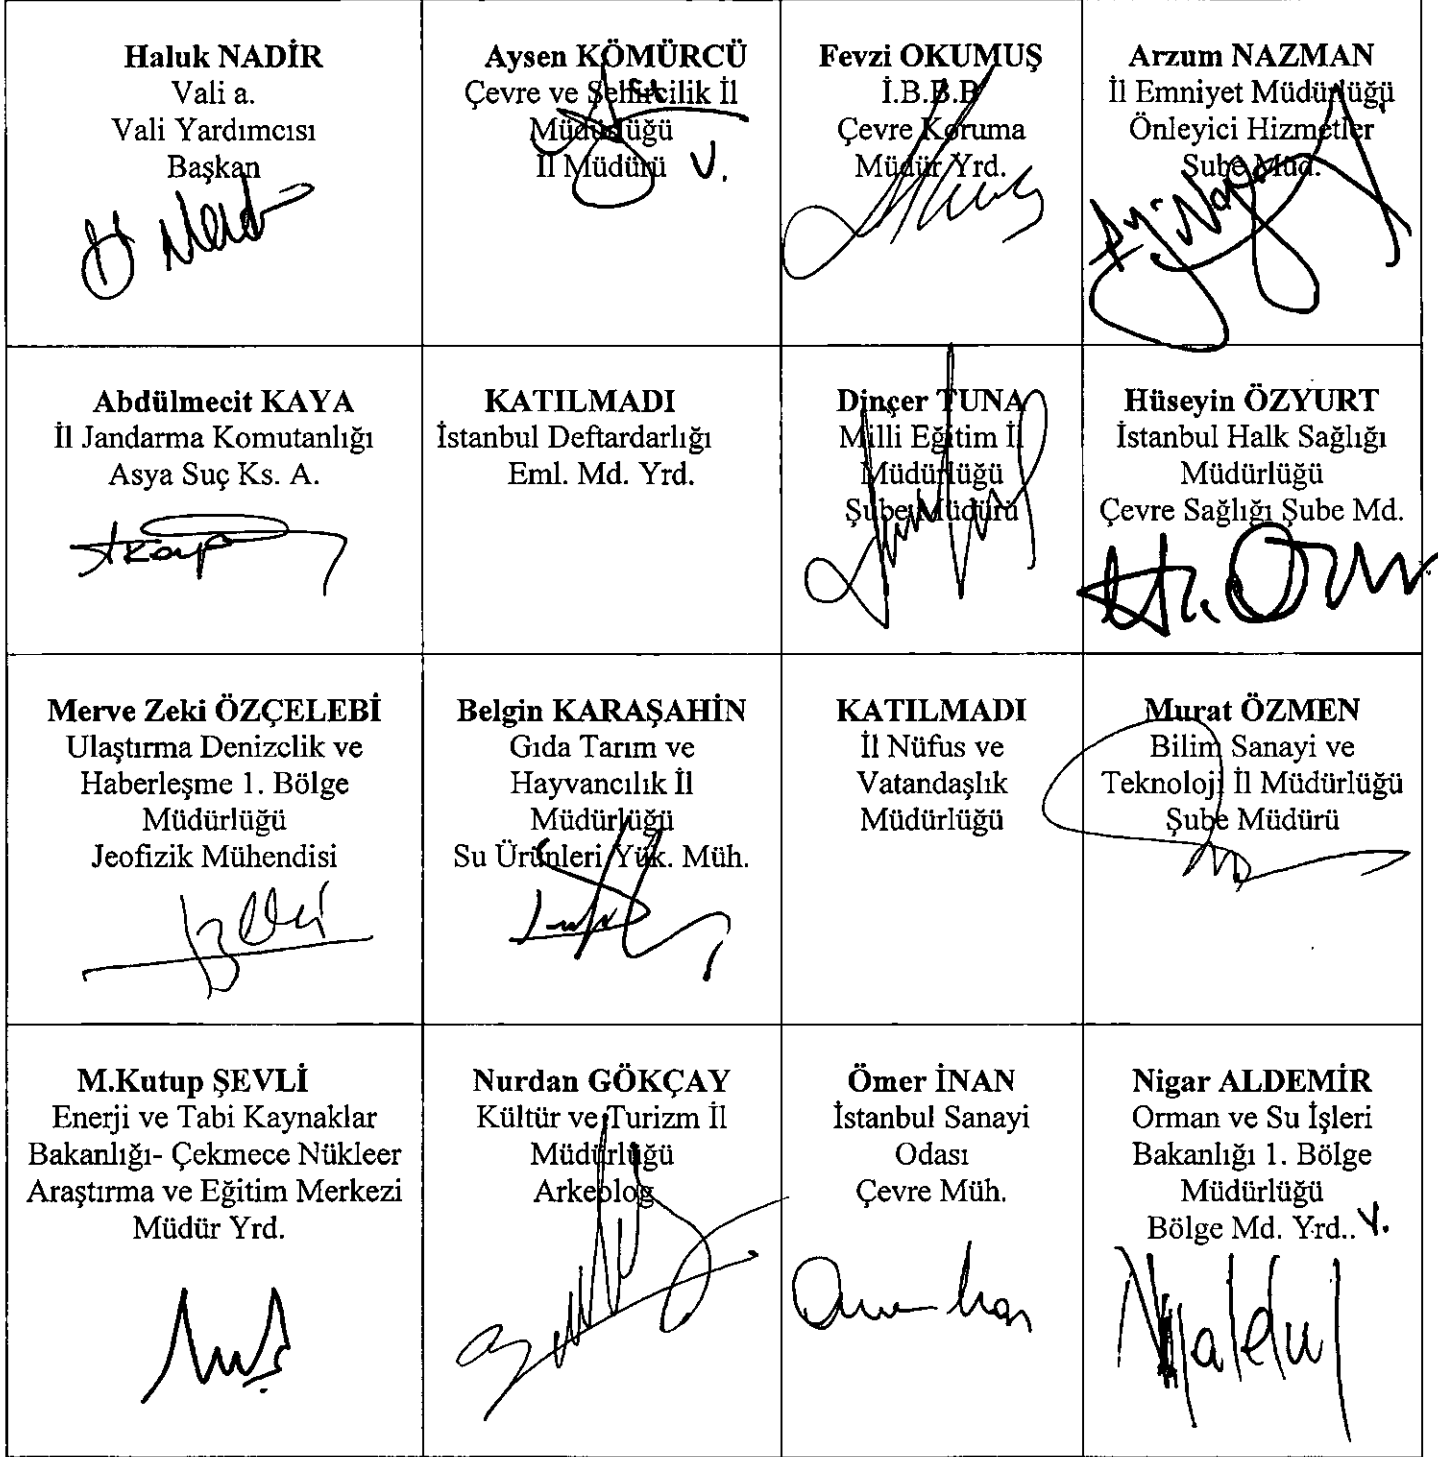 Haluk NADİR
Vali a.
Vali Yardımcısı
Başkan
Aysen KÖMÜRCÜ
Çevre ve Şehircilik İl
Müdürlüğü
İl Müdürü V.
Fevzi OKUMUŞ
İ.B.B.B
Çevre Koruma
Müdür Yrd.
Arzum NAZMAN
İl Emniyet Müdürlüğü
Önleyici Hizmetler
Şube Müd.
Abdülmecit KAYA
İl Jandarma Komutanlığı
Asya Suç Ks. A.
KATILMADI
İstanbul Deftardarlığı
Eml. Md. Yrd.
Dinçer TUNA
Milli Eğitim İl
Müdürlüğü
Şube Müdürü
Hüseyin ÖZYURT
İstanbul Halk Sağlığı
Müdürlüğü
Çevre Sağlığı Şube Md.
Merve Zeki ÖZÇELEBİ
Ulaştırma Denizclik ve
Haberleşme 1. Bölge
Müdürlüğü
Jeofizik Mühendisi
Belgin KARAŞAHİN
Gıda Tarım ve
Hayvancılık İl
Müdürlüğü
Su Ürünleri Yük. Müh.
KATILMADI
İl Nüfus ve
Vatandaşlık
Müdürlüğü
Murat ÖZMEN
Bilim Sanayi ve
Teknoloji İl Müdürlüğü
Şube Müdürü
M.Kutup ŞEVLİ
Enerji ve Tabi Kaynaklar
Bakanlığı- Çekmece Nükleer
Araştırma ve Eğitim Merkezi
Müdür Yrd.
Nurdan GÖKÇAY
Kültür ve Turizm İl
Müdürlüğü
Arkeolog
Ömer İNAN
İstanbul Sanayi
Odası
Çevre Müh.
Nigar ALDEMİR
Orman ve Su İşleri
Bakanlığı 1. Bölge
Müdürlüğü
Bölge Md. Yrd.. V.